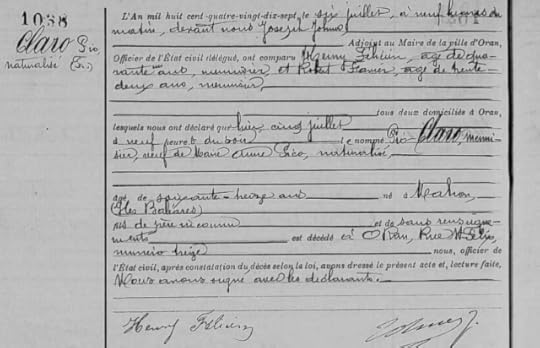 1038
Claro Pio,
naturalisé (Fr.)
L'An mil huit cent-quatre-vingt-dix-sept, le six juillet, à neuf heures du
matin, devant nous Joseph
Adjoint au Maire de la ville d'Oran,
Officier de l'État civil délégué, ont comparu Henry Félicien, âgé de qua-
rante ans, menuisier, et Robert, âgé de trente-
deux ans, menuisier,
tous deux domiciliés à Oran,
lesquels nous ont déclaré que hier, cinq juillet
à neuf heures du soir le nommé Pio Claro, menui-
sier, veuf de Marie Anne Pico, naturalisé
âgé de soixante-treize ans né à Mahon,
(Iles Baléares)
fils de père inconnu et de sans renseigne-
ments est décédé à Oran, Rue
numéro treize nous, officier de
l'État civil, après constatation du décès selon la loi, avons dressé le présent acte et, lecture faite,
Nous avons signé avec les déclarants.
Henry Félicien